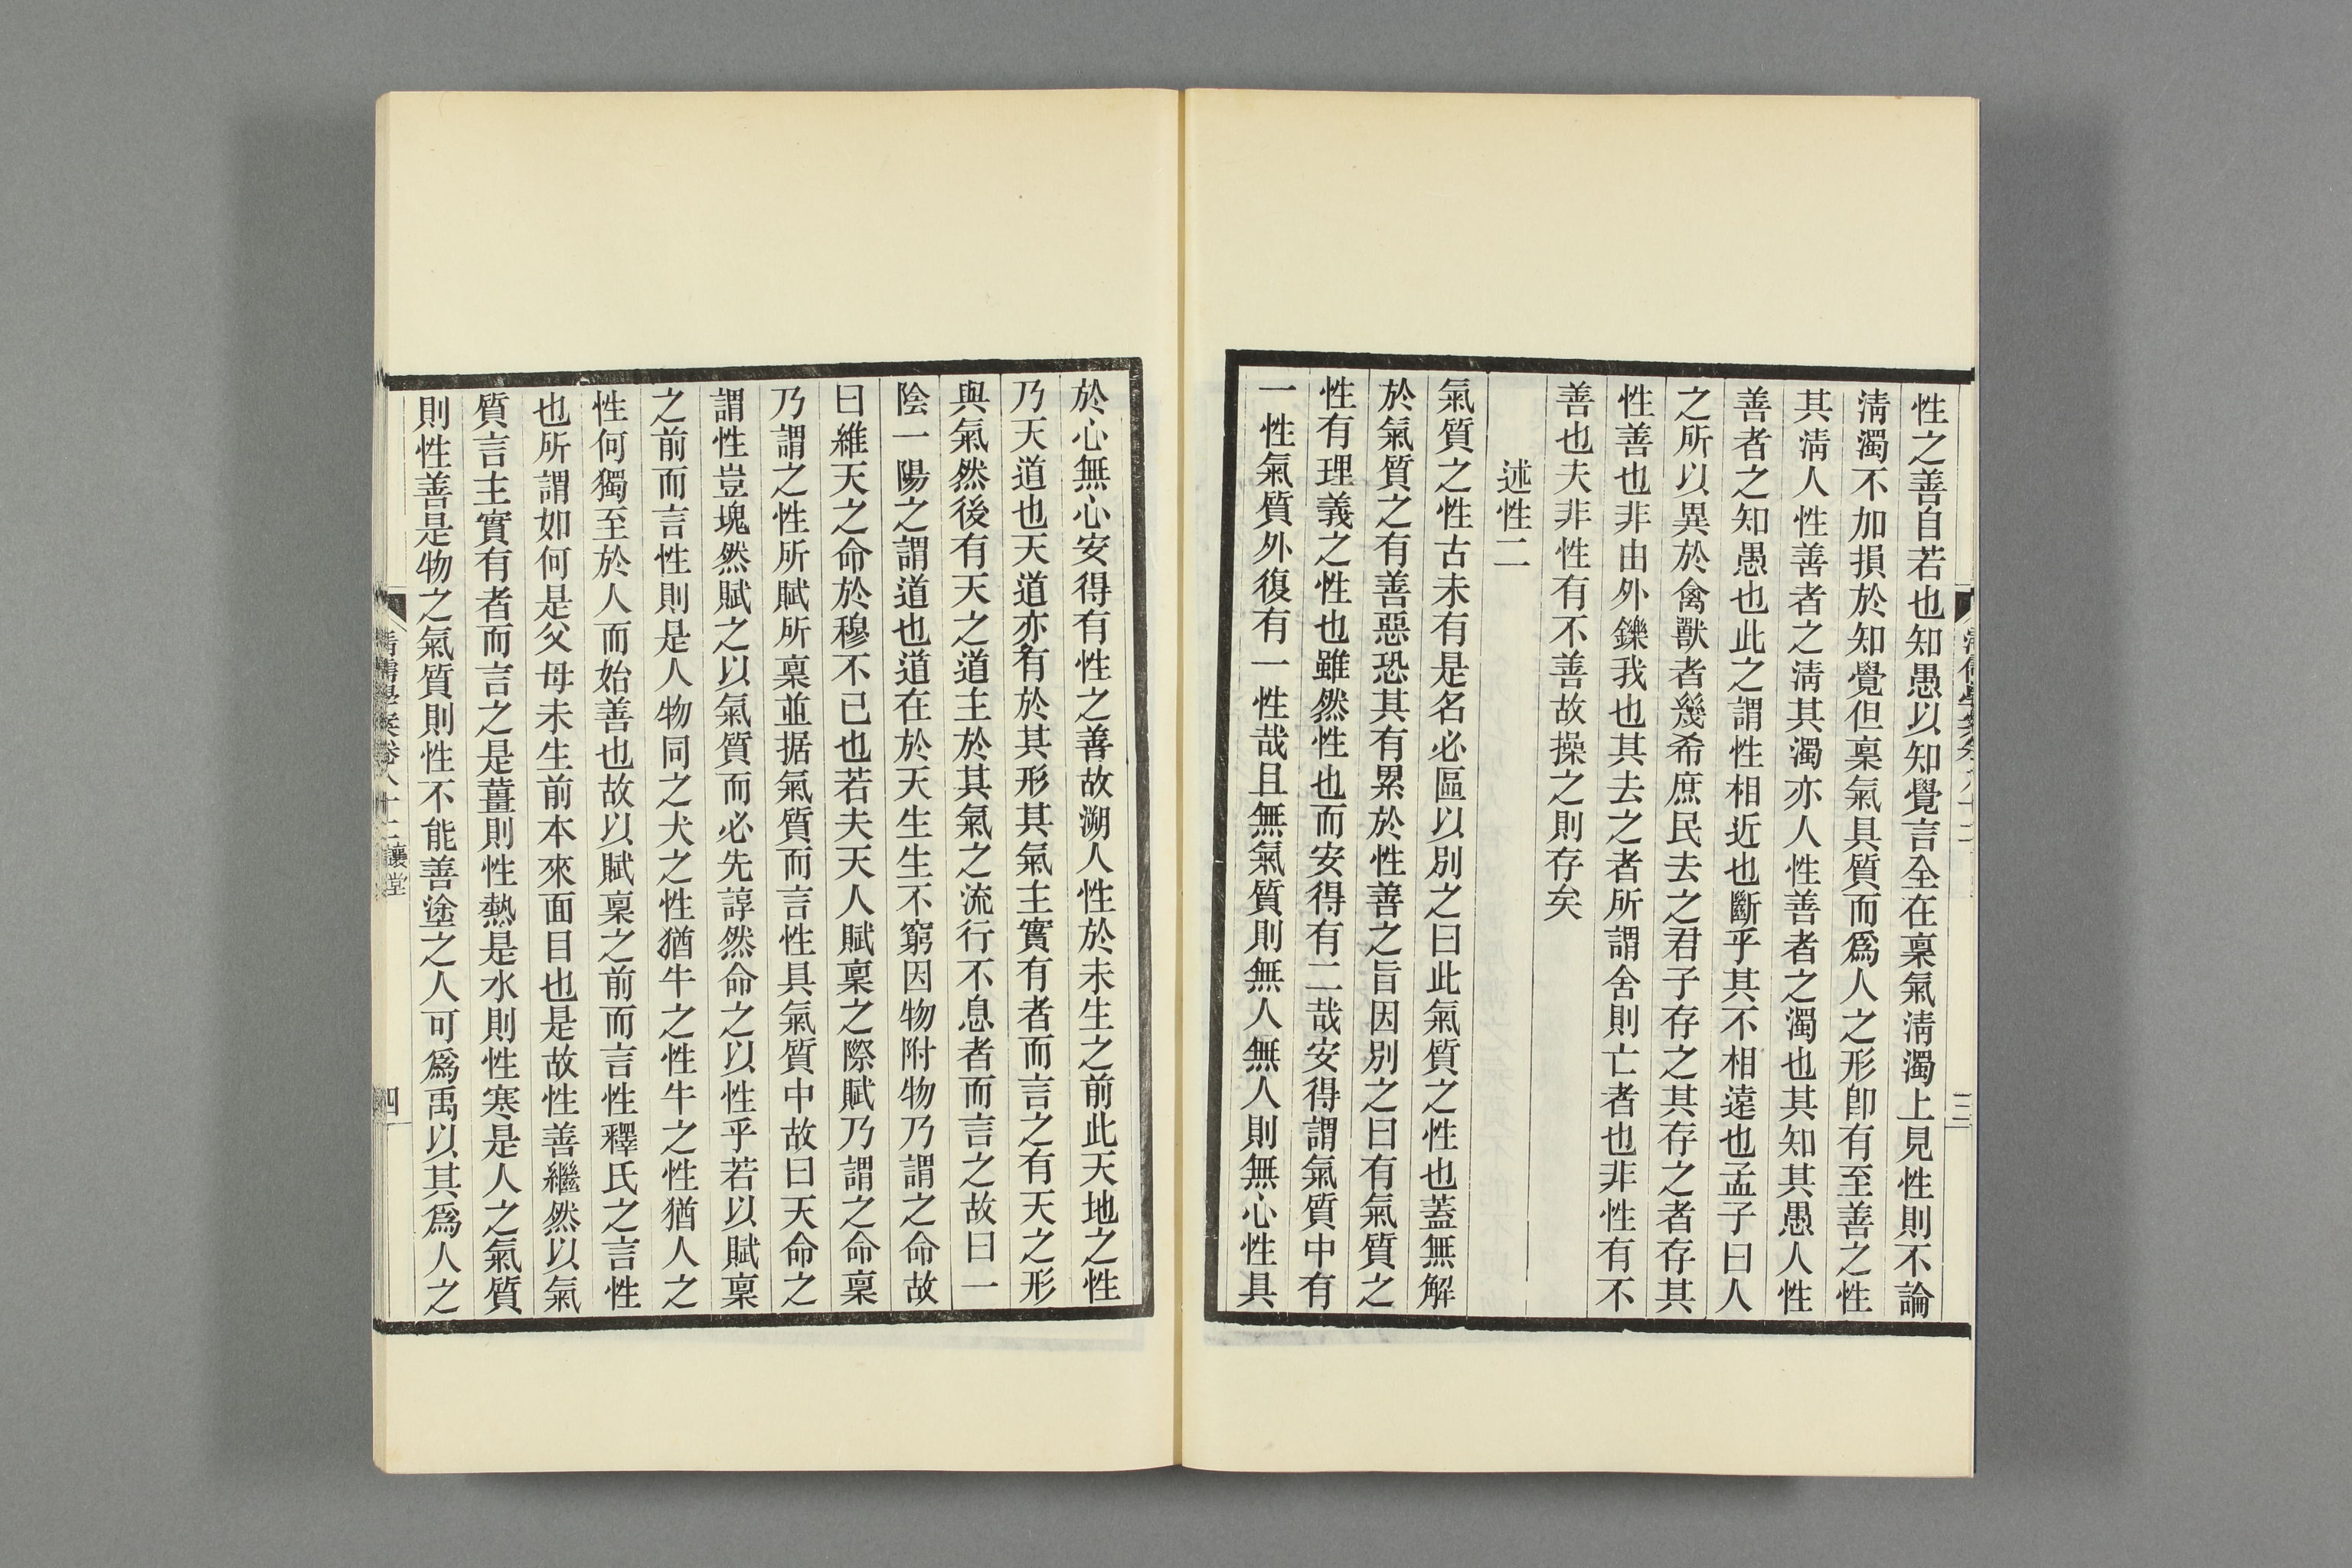 性之善自若也知愚以知覺言全在稟氣淸濁上見性則不論
淸濁不加損於知覺但稟氣具質而爲人之形卽有至善之性
其淸人性善者之淸其濁亦人性善者之濁也其知其愚人性
善者之知愚也此之謂性相近也斷乎其不相遠也孟子曰人
之所以異於禽獸者幾希庶民去之君子存之其存之者存其
性善也非由外鑠我也其去之者所謂舍則亡者也非性有不
善也夫非性有不善故操之則存矣
述性二
氣質之性古未有是名必區以別之曰此氣質之性也蓋無解
於氣質之有善惡恐其有累於性善之旨因別之曰有氣質之
性有理義之性也雖然性也而安得有二哉安得謂氣質中有
一性氣質外復有一性哉且無氣質則無人無人則無心性具
於心無心安得有性之善故溯人性於未生之前此天地之性
乃天道也天道亦有於其形其氣主實有者而言之有天之形
與氣然後有天之道主於其氣之流行不息者而言之故曰一
陰一陽之謂道也道在於天生生不窮因物附物乃謂之命故
曰維天之命於穆不已也若夫天人賦稟之際賦乃謂之命稟
乃謂之性所賦所稟並据氣質而言性具氣質中故曰天命之
謂性豈塊然賦之以氣質而必先諄然命之以性乎若以賦稟
之前而言性則是人物同之犬之性猶牛之性牛之性猶人之
性何獨至於人而始善也故以賦稟之前而言性釋氏之言性
也所謂如何是父母未生前本來面目也是故性善繼然以氣
質言主實有者而言之是薑則性熱是水則性寒是人之氣質
則性善是物之氣質則性不能善塗之人可爲禹以其爲人之
淸儒學案卷八十二 讓堂
四
三